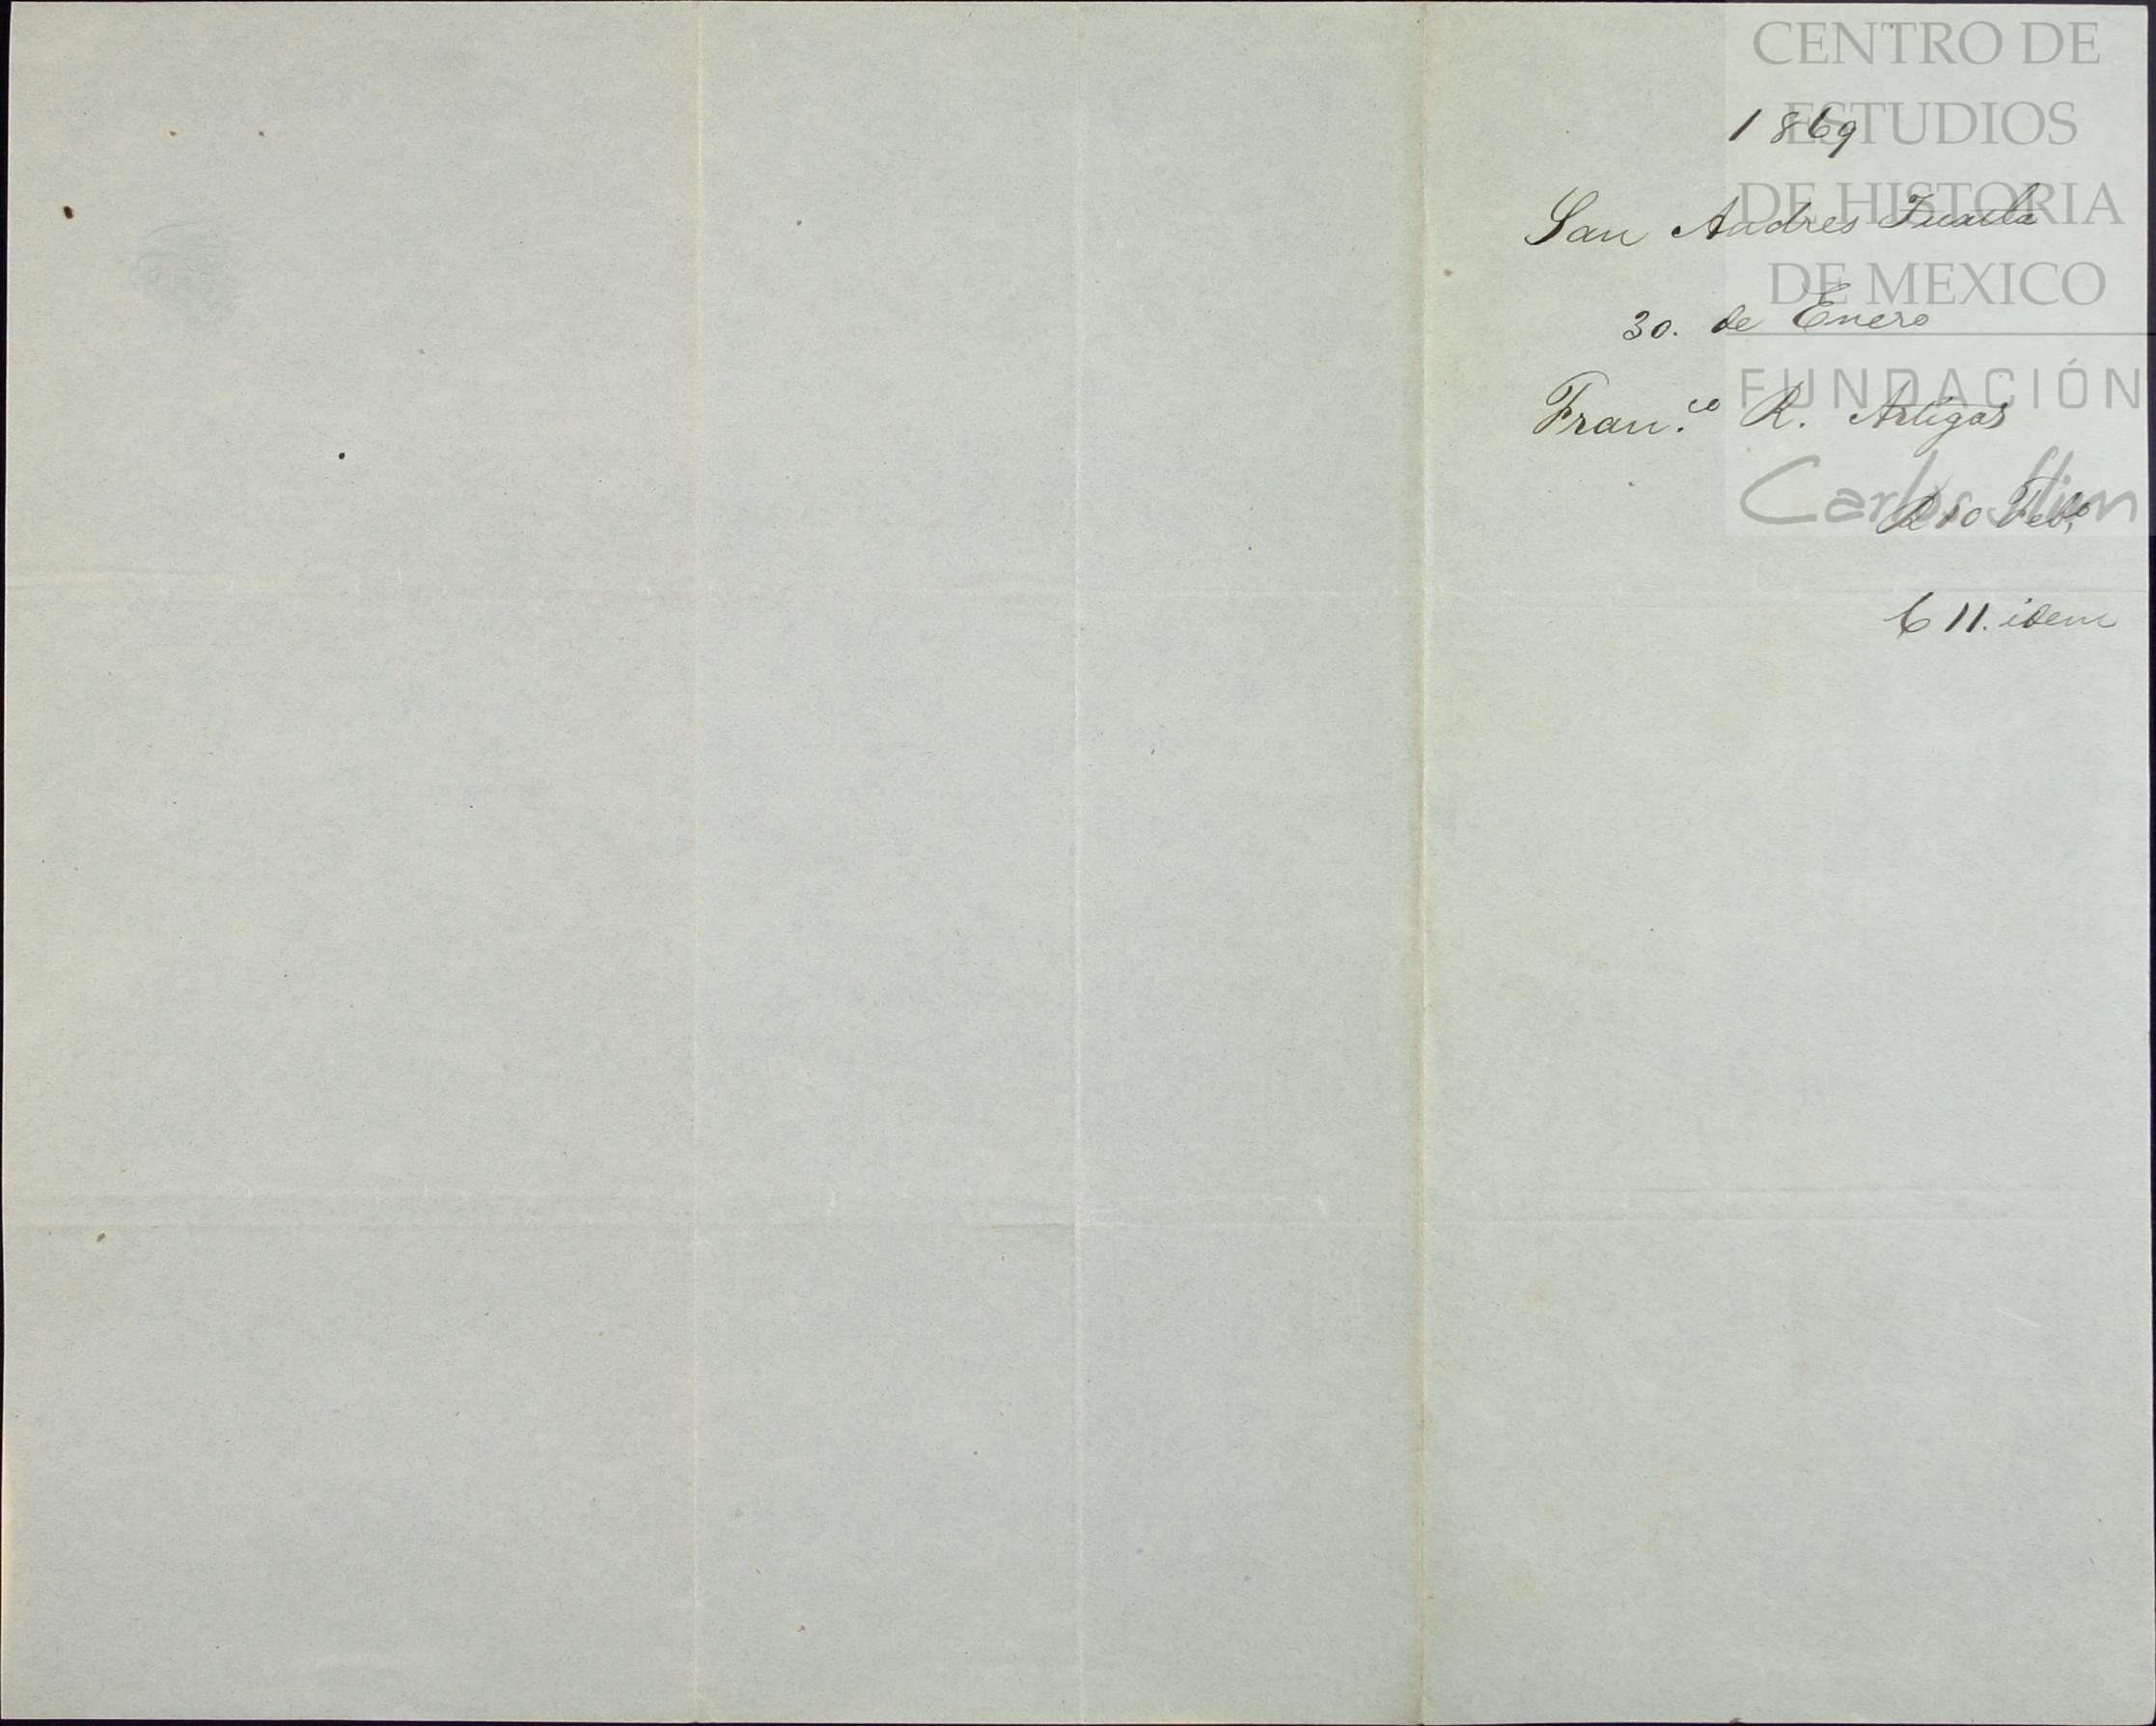 CENTRO DE
ESTUDIOS
DE HISTORIA
DE MEXICO
FUNDACIÓN
Carlos Slim
1869
San Andres Tuxtla
30. de Enero
Fran.co R. Artigas
R 10 Feb.o
C 11. idem